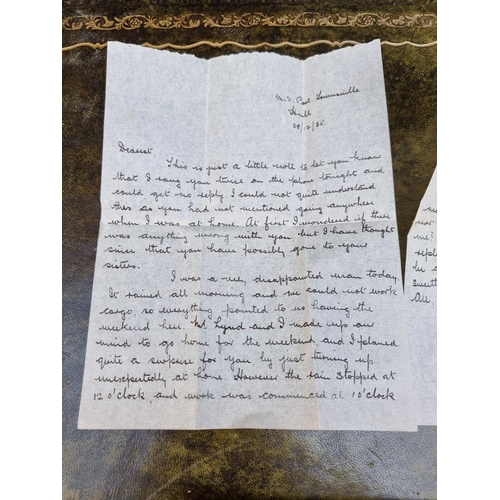 M.V. Port Townsville
Hull
29/12/35.
Dearest,
This is just a little note to let you know
that I rang you twice on the phone tonight and
could get no reply. I could not quite understand
this as you had not mentioned going anywhere
when I was at home. At first I wondered if there
was anything wrong with you but I have thought
since that you have possibly gone to your
sisters.
I was a very disappointed man today.
It rained all morning and we could not work
cargo, so everything pointed to us having the
weekend here. Mr. Lynd and I made up our
mind to go home for the weekend, and I planned
quite a surprise for you by just turning up
unexpectedly at home. However the rain stopped at
12 o'clock, and work was commenced at 1 o'clock
me?
reply
he
Sweet
All